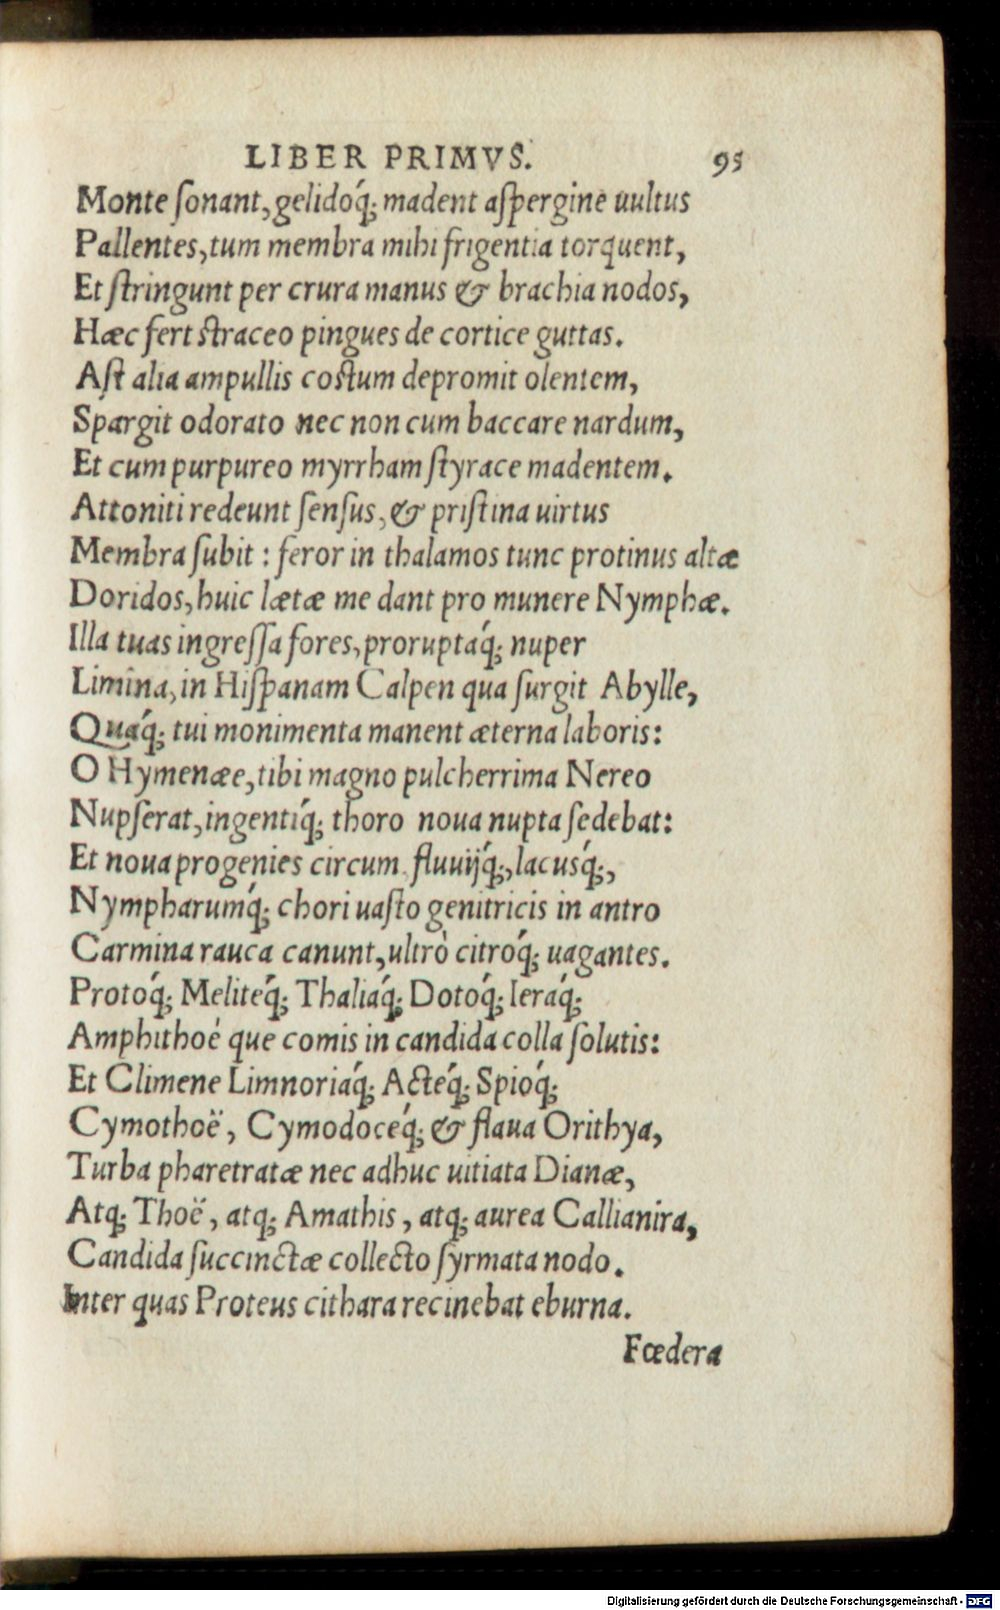 LIBER PRIMVS. 95
Monte ſonant, gelidoq́; madent aſpergine uultus
Pallentes, tum membra mihi frigentia torquent,
Et ſtringunt per crura manus & brachia nodos,
Hæc fert ſtraceo pingues de cortice guttas.
Aſt alia ampullis coſtum depromit olentem,
Spargit odorato nec non cum baccare nardum,
Et cum purpureo myrrham ſtyrace madentem.
Attoniti redeunt ſenſus, & priſtina uirtus
Membra ſubit: feror in thalamos tunc protinus altæ
Doridos, huic lætæ me dant pro munere Nymphæ.
Illa tuas ingreſſa fores, proruptaq́; nuper
Limina, in Hiſpanam Calpen qua ſurgit Abylle,
Quaq́; tui monimenta manent æterna laboris:
O Hymenæe, tibi magno pulcherrima Nereo
Nupſerat, ingentiq́; thoro noua nupta ſedebat:
Et noua progenies circum fluuijq́;, lacusq́;,
Nympharumq́; chori uaſto genitricis in antro
Carmina rauca canunt, ultrò citroq́; uagantes.
Protoq́; Meliteq́; Thaliaq́; Dotoq́; Ieraq́;
Amphithoé que comis in candida colla ſolutis:
Et Climene Limnoriaq́; Acteq́; Spioq́;
Cymothoë, Cymodoceq́; & flaua Orithya,
Turba pharetratæ nec adhuc uitiata Dianæ,
Atq; Thoë, atq; Amathis, atq; aurea Callianira,
Candida ſuccinctæ collecto ſyrmata nodo.
Inter quas Proteus cithara recinebat eburna.
Fœdera
Digitalisierung gefördert durch die Deutsche Forschungsgemeinschaft - DFG